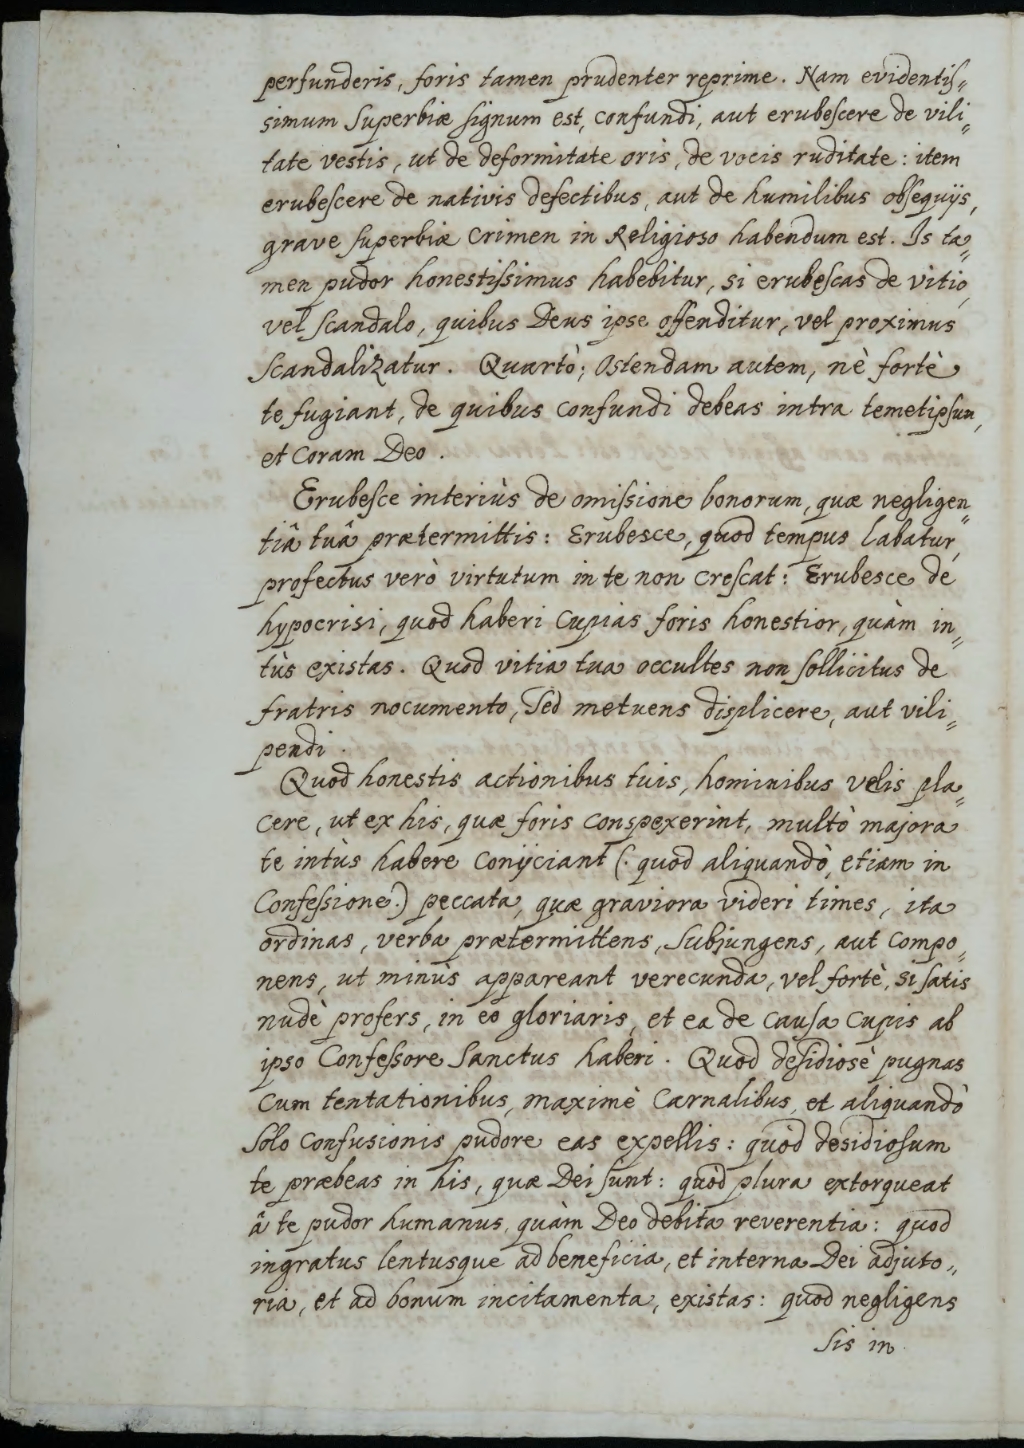 perfunderis, foris tamen prudenter reprime. Nam evidentiſ„
simum Superbiæ ſignum est, confundi, aut erubeſcere de vili„
tate vestis, ut de deformitate oris, de vocis ruditate: item
erubeſcere de nativis defectibus, aut de humilibus obſequijs,
grave ſuperbiæ crimen in Religioso habendum est. Is ta„
men pudor honestiſsimus habebitur, si erubeſcas de vitio,
vel ſcandalo, quibus Deus ipse offenditur, vel proximus
Scandalizatur. Quartò; Ostendam autem, nè fortè
te fugiant, de quibus confundi debeas intra temetipſum,
et Coram Deo.
Erubeſce interiùs de omiſsione bonorum, quæ negligen„
tiâ tuâ prætermittis: Erubesce, quod tempus labatur,
profectus verò virtutum in te non creſcat: Erubesce de
hypocrisi, quod haberi cupias foris honestior, quàm in„
tùs existas. Quod vitia tua occultes non ſollicitus de
fratris nocumento, Sed metuens displicere, aut vili„
pendi.
Quod honestis actionibus tuis, hominibus velis pla„
cere, ut ex his, quæ foris conspexerint, multò majora
te intùs habere conijciant (: quod aliquandò, etiam in
Confeſsione:) peccata, quæ graviora videri times, ita
ordinas, verba prætermittens, Subjungens, aut compo„
nens, ut minùs appareant verecunda, vel fortè, si ſatis
nudè profers, in eo gloriaris, et ea de cauſa cupis ab
ipso Confeſsore Sanctus haberi. Quod deſidiosè pugnas
cum tentationibus, maximè carnalibus, et aliquandò
Solo confusionis pudore eas expellis: quòd desidioſum
te præbeas in his, quæ Dei ſunt: quòd plura extorqueat
â te pudor humanus, quàm Deo debita reverentia: quod
ingratus lentusque ad beneficia, et interna Dei adjuto„
ria, et ad bonum incitamenta, existas: quod negligens
Sis in